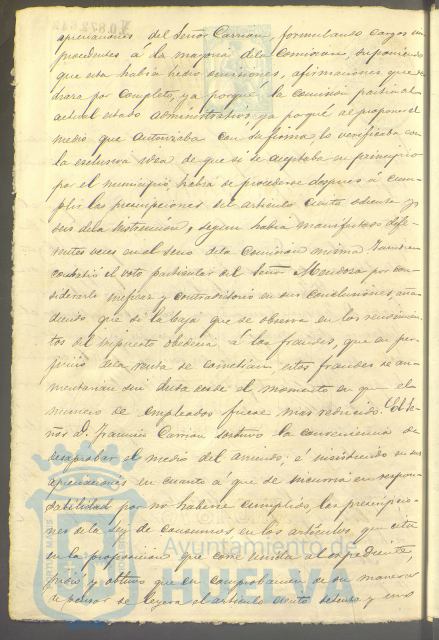 apreciaciones del Señor Carrión, formulando cargos im
procedentes á la mayoría de la Comisión, suponiendo
que esta había hecho omisiones, afirmaciones que
por completo, ya porque la comisión partía del
actual estado administrativo, ya porque al proponer el
medio que autorizaba con su firma lo verificaba con
la exclusiva idea de que si se aceptaba en principio
por el municipio, habría de procederse después á cum
plir las prescripciones del artículo ciento ochenta y
seis de la Instrucción, según había manifestado dife
rentes veces en el seno de la Comisión misma. Tambien
combatió el voto particular del Señor Mendoza por con
siderarlo ineficaz y contradictorio en sus conclusiones, aña
diendo que si la baja que se observa en los rendimien
tos del impuesto obedecía á los fraudes, que en per
juicio de la renta se cometían, estos fraudes se au
mentarían sin duda desde el momento en que el
número de empleados fuese mas reducido. El Se
ñor D. Francisco Carrión sostuvo la conveniencia de
desaprobar el medio del arriendo, é insistiendo en sus
apreciaciones en cuanto á que se incurría en respon
sabilidad por no haberse cumplido las prescripcio
nes de la Ley de consumos en los artículos que cita
en la proposición que corre unida al expediente,
pidió y obtuvo que en comprobación de su manera
de pensar se leyera el artículo ciento ochenta y uno
Ayuntamiento de
HUELVA